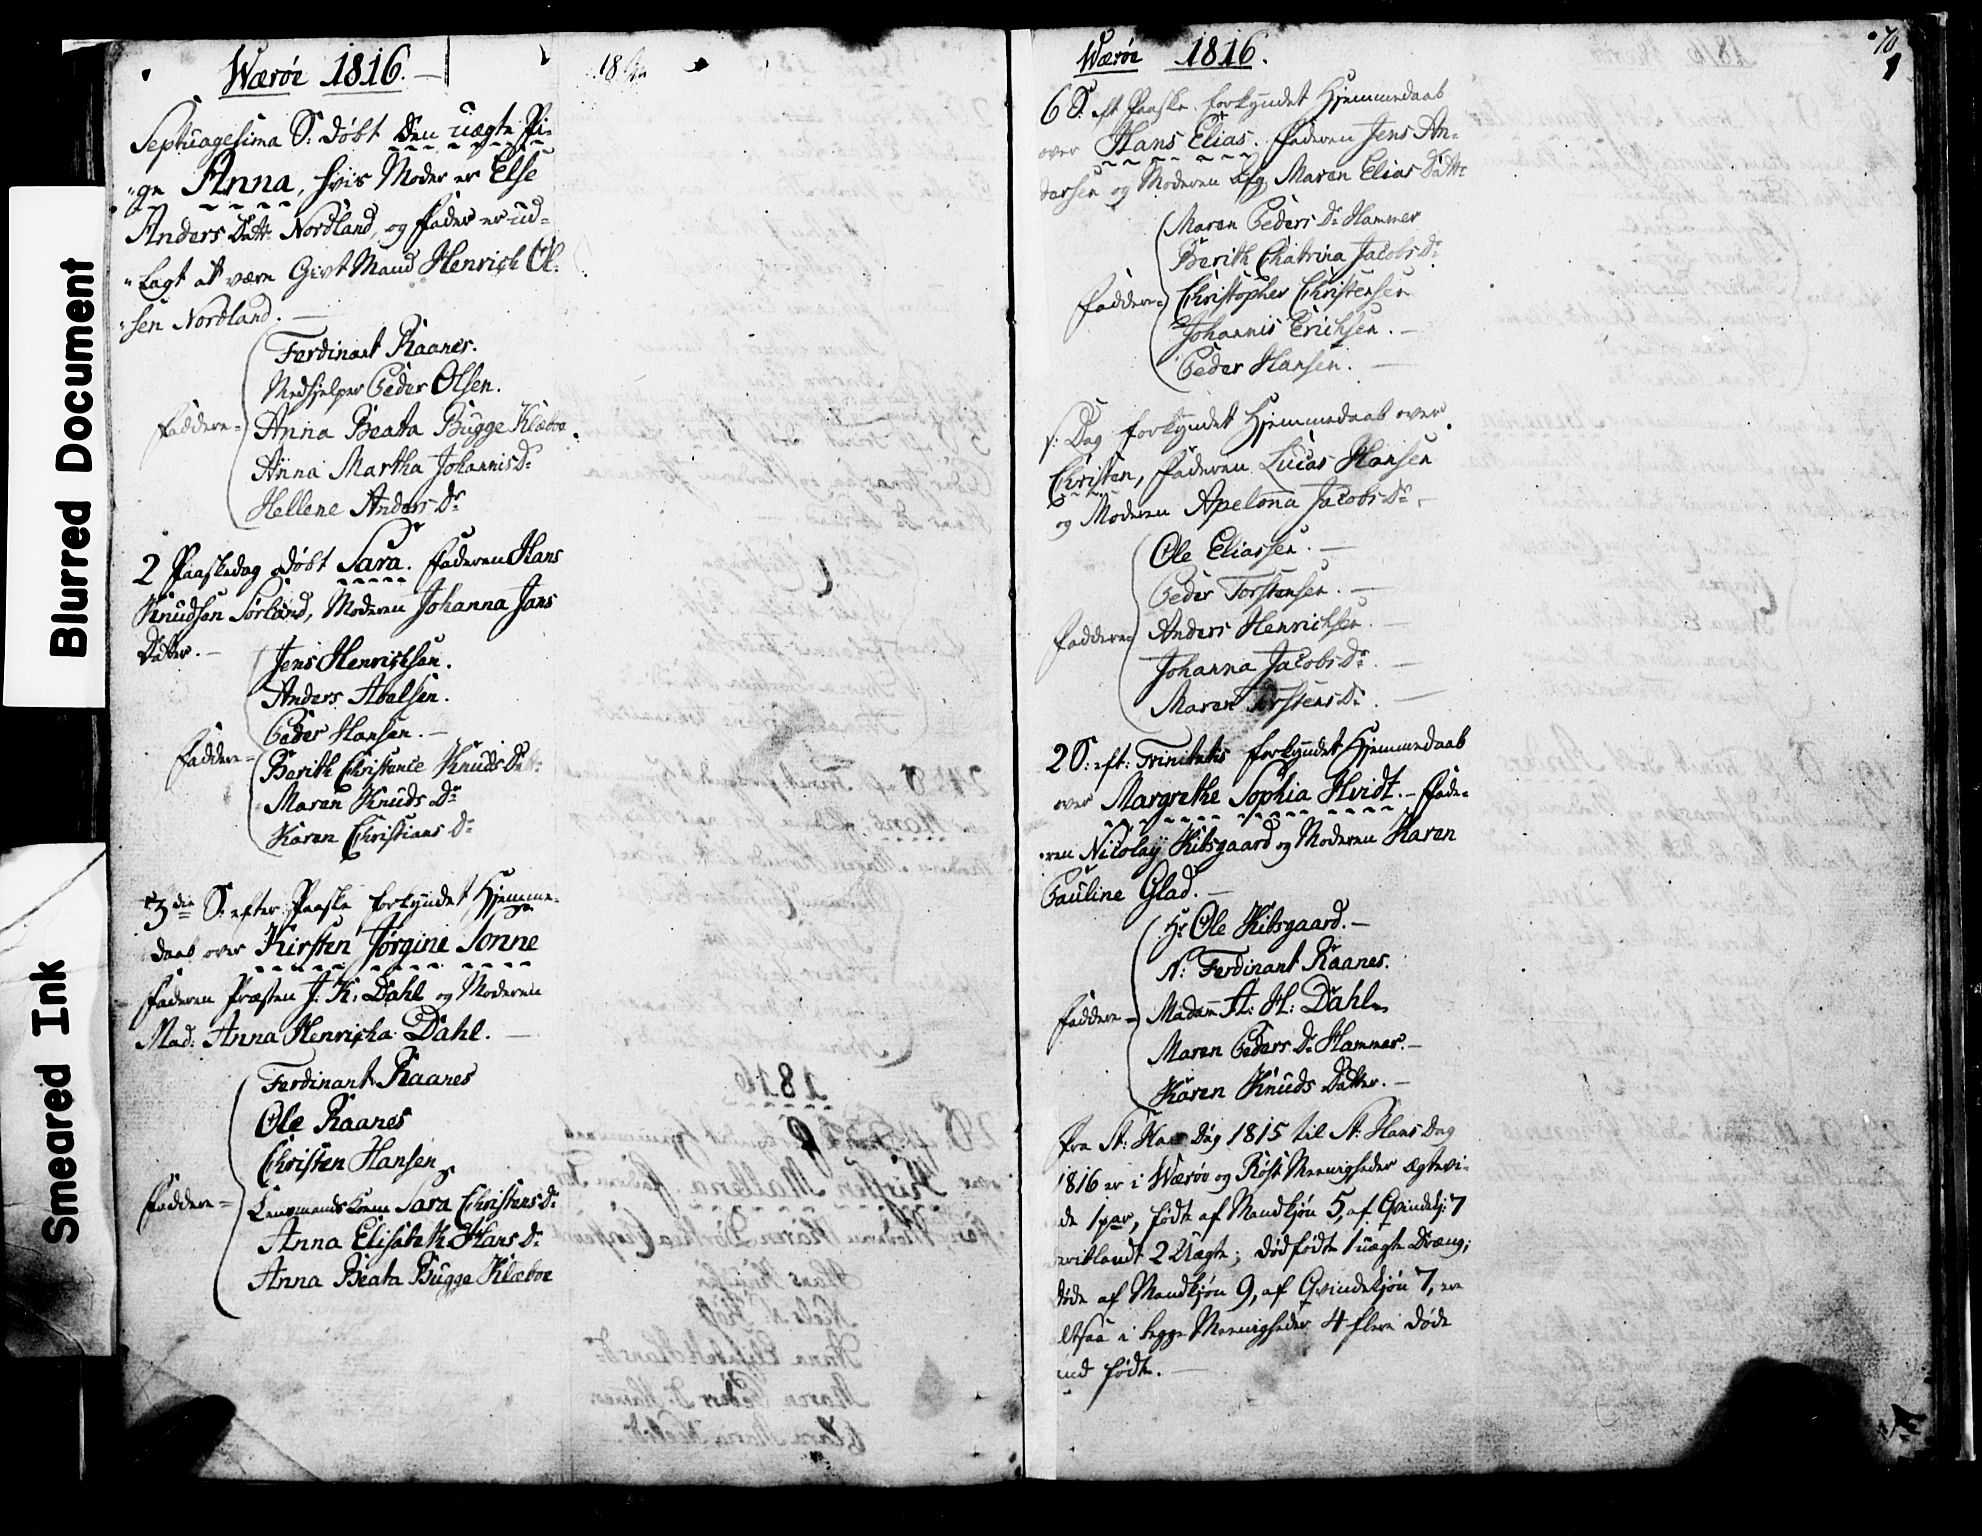 Wærøe 1816.
Septuagesima S: døbt den uægte Pi-
ge Anna, hvis Moder er Else
Anders Datt: Nordland, og Fader er ud-
lagt at være Givt Mand Henrich Ol-
sen Nordland.
Ferdinant Raanes.
Medhjelper Peder Olsen.
Faddere = Anna Beata Bugge Klæboe.
Anna Martha Johannis Dr
Hellene Anders Dr
2 Paaskedag døbt Sara. Faderen Hans
Knudsen Sørland, Moderen Johanna Jans
Datter.
Jens Henrichsen.
Anders Abelsen.
Peder Hansen.
Faddere = Berith Christence Knuds Datt:
Maren Knuds Dr
Karen Christians Dr
3die S. efter Paaske forkyndet Hjemme-
daab over Kirsten Jørgine Sonne
Faderen Præsten J. K. Dahl og Moderen
Mad: Anna Henricha Dahl.
Ferdinant Raanes
Ole Raanes
Christen Hansen
Faddere = Lensmands Kone Sara Christens Dr
Anna Elisabeth Hans Dr
Anna Beata Bugge Klæboe
Wærøe 1816.
70
1
6 S. eft Paaske forkyndet Hjemmedaab
over Hans Elias. Faderen Jens An-
dersen og Moderen Maren Elias Datt:
Maren Peders Dr Hammer
Berith Chatrina Jacobs Dr
Faddere = Christopher Christensen
Johannis Erichsen.
Peder Hansen.
s: Dag forkyndet Hjemmedaab over
Christen, Faderen Lucas Hansen
og Moderen Apelona Jacobs Dr
Ole Eliassen.
Peder Torstensen.
Faddere = Anders Henrichsen.
Johanna Jacobs Dr
Maren Torstens Dr
2 S: eft: Trinitatis forkyndet Hjemmedaab
over Margrethe Sophia Hvidt. Fade-
ren Nicolay Kilsgaard og Moderen Karen
Pauline Glad.
Hr Ole Kilsgaard.
N: Ferdinant Raanes.
Faddere = Madam A: H: Dahl
Maren Peders Dr Hammer.
Karen Knuds Datter.
Fra St: Hans Dag 1815 til St: Hans Dag
1816 er i Wærøe og Røst Menigheder ægtevi-
de 1 par, fødte af Mandkjøn 5, af Qvindekj: 7
hvoriblandt 2 Uægte; dødfødte 1 uægte Dreng;
døde af Mandkjøn 9, af Qvindekjøn 7, er
altsaa i begge Menigheder 4 flere døde
end fødte.
Blurred Document
Smeared Ink